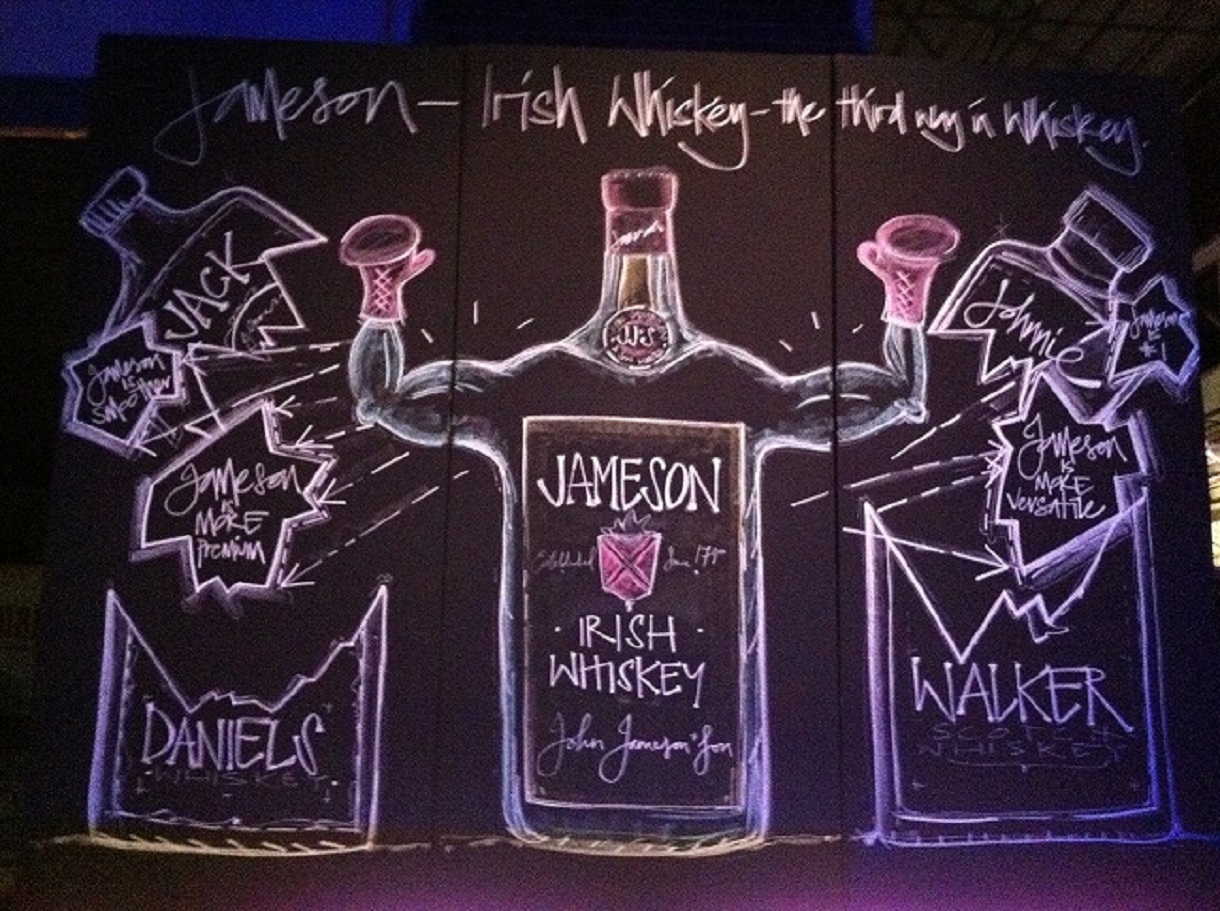 Jameson - Irish Whiskey - the third way in Whiskey.
JACK
Jameson
is
Smoother
Jameson
is
MORE
Premium
DANIELS
WHISKEY
JJ&S
JAMESON
Established Since 17
IRISH
WHISKEY
John Jameson & Son
Johnnie
Jameson
is
#1
Jameson
is
MORE
Versatile
WALKER
SCOTCH
WHISKEY